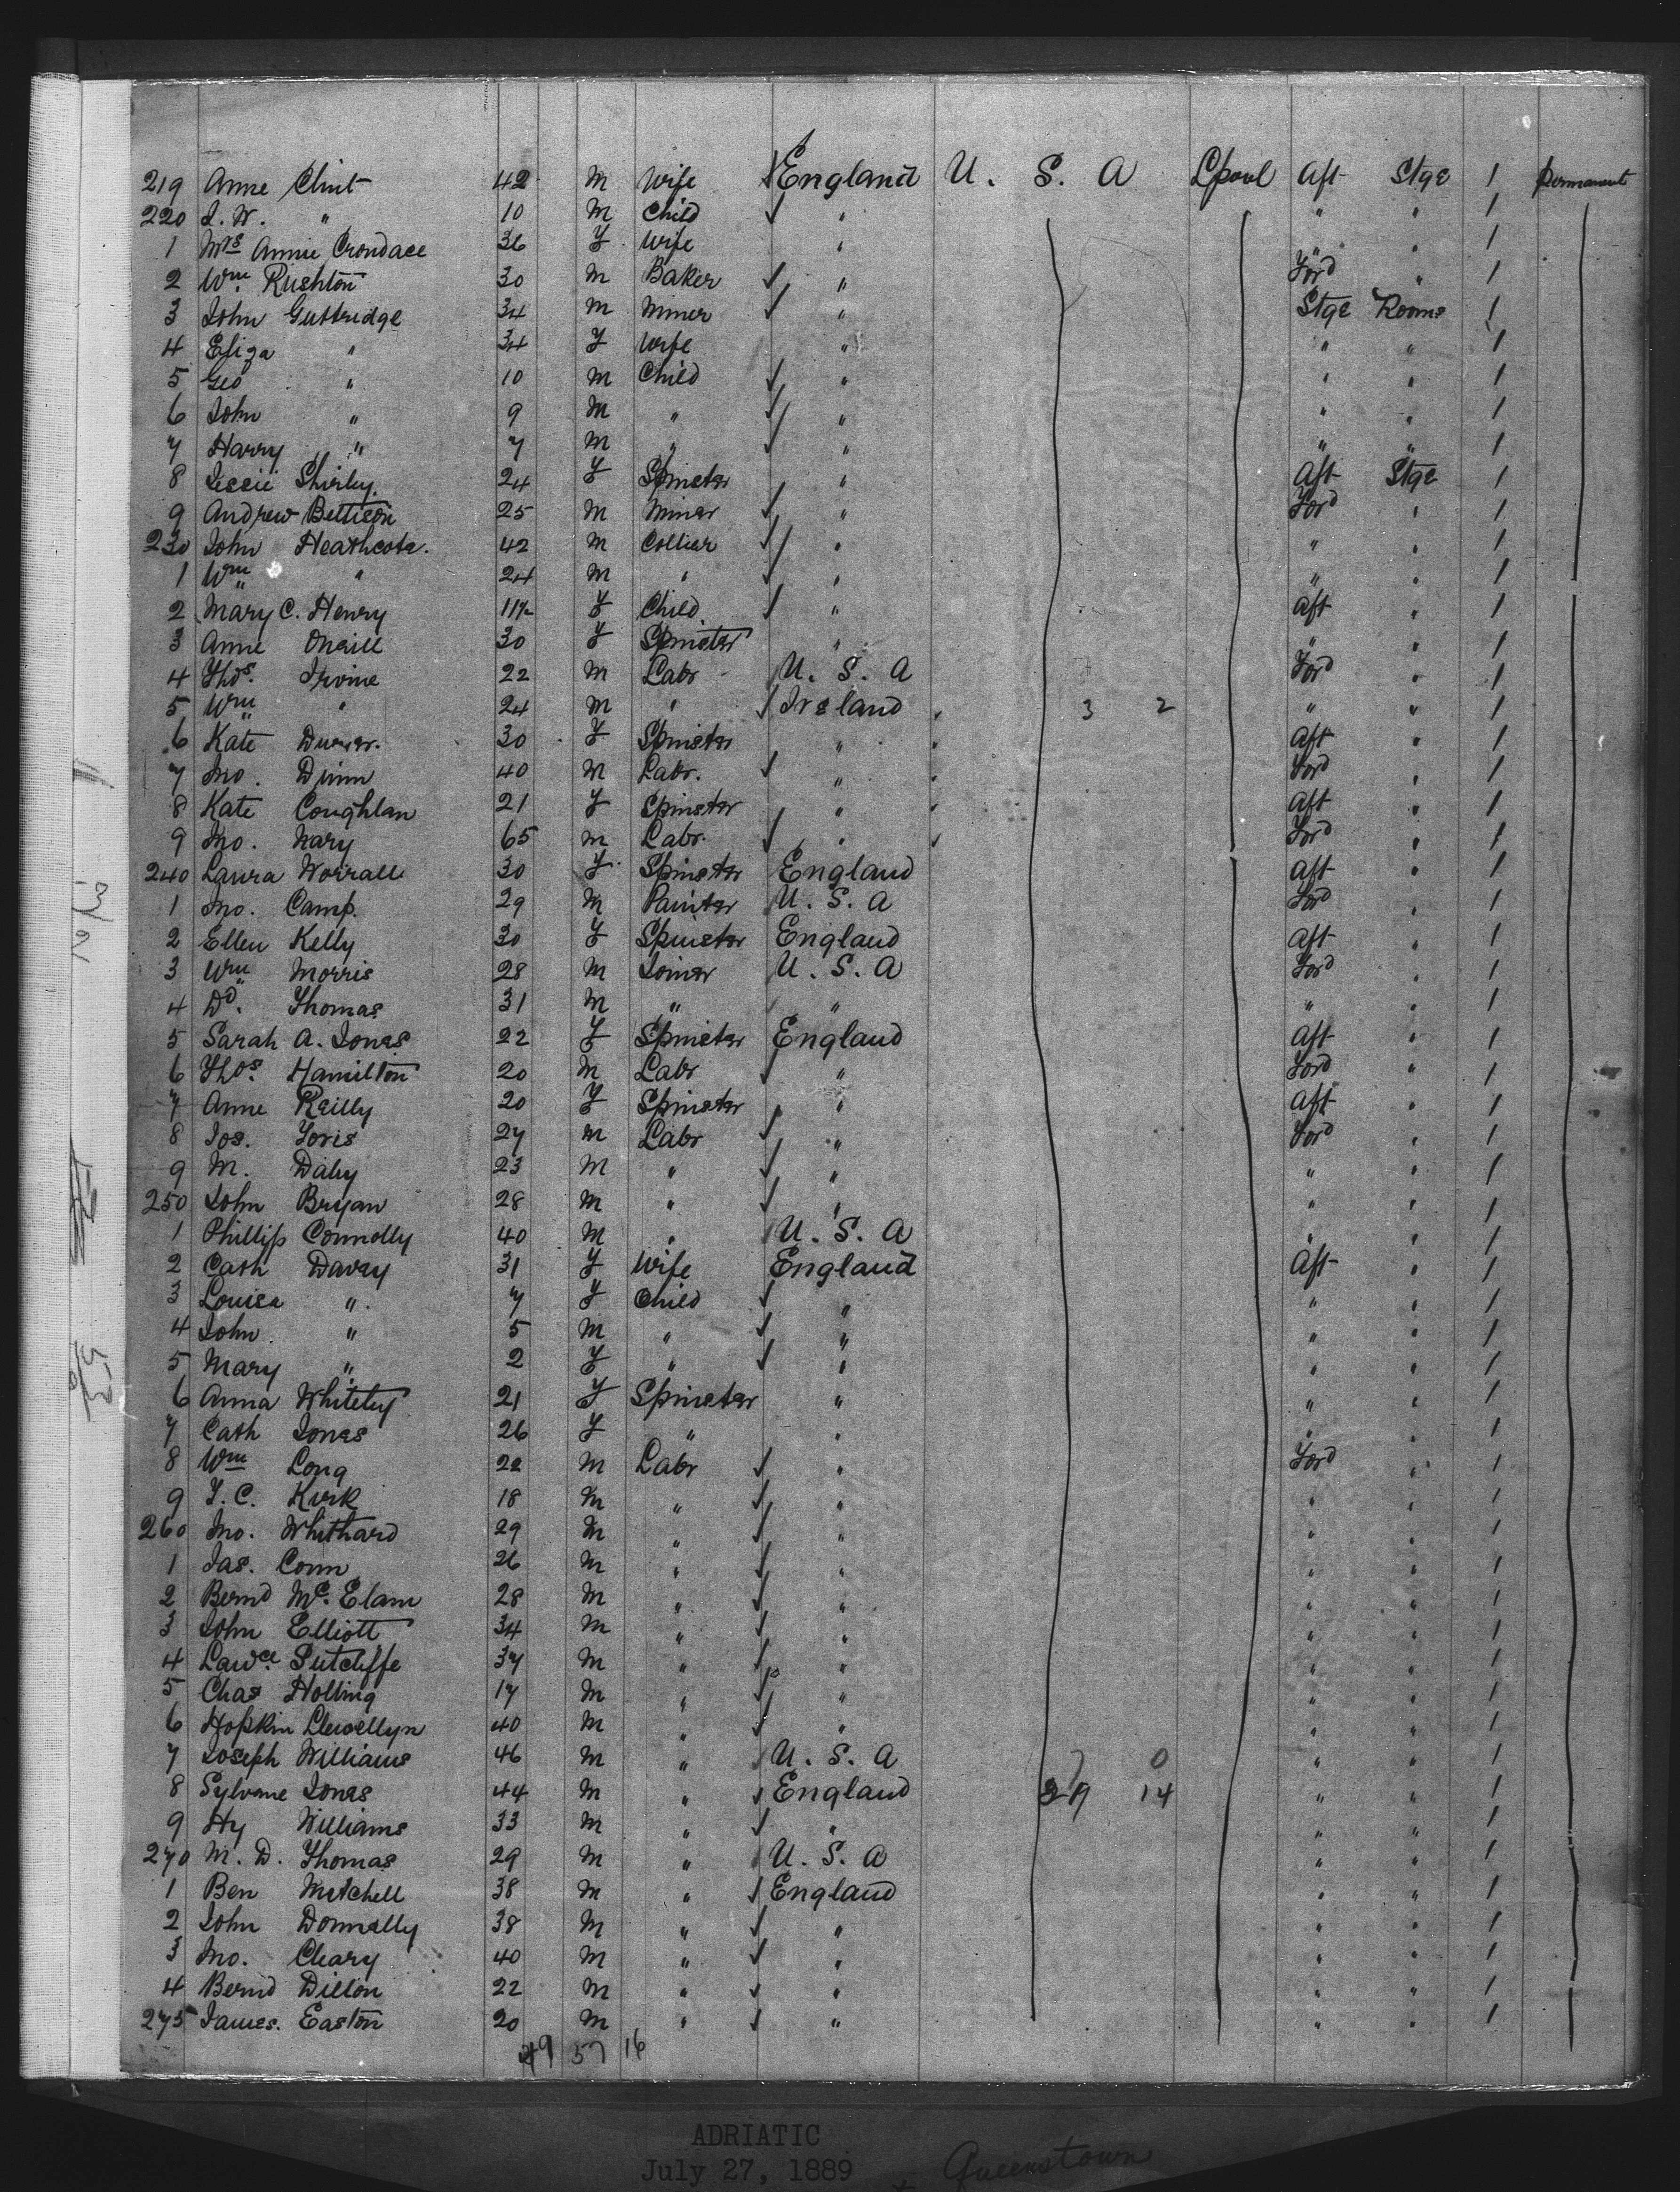 219 Anne Clint 42 M Wife England U. S. A Lpool Aft Stge 1 permanent
220 J. W. " 10 M Child " " " 1
1 Mrs Annie Crondace 36 F Wife " " " 1
2 Wm Rushton 30 M Baker " Ford " 1
3 John Guttridge 34 M Miner " Stge Rooms 1
4 Eliza " 34 F Wife " " " 1
5 Geo " 10 M Child " " " 1
6 John " 9 M " " " " 1
7 Harry " 7 M " " " " 1
8 Jessie Shirley 24 F Spinster " Aft Stge 1
9 Andrew Bettison 25 M Miner " Ford " 1
230 John Heathcote. 42 M Collier " " " 1
1 Wm " 24 M " " " " 1
2 Mary C. Henry 11½ F Child " Aft " 1
3 Anne Oneill 30 F Spinster " " " 1
4 Thos. Irvine 22 M Labr U. S. A Ford " 1
5 Wm " 24 M " Ireland 3 2 " " 1
6 Kate 30 F Spinster " Aft " 1
7 Jno. Dunn 40 M Labr. " Ford " 1
8 Kate Coughlan 21 F Spinster " Aft " 1
9 Jno. Nary 65 M Labr. " Ford " 1
240 Laura Worrall 30 F Spinster England Aft " 1
1 Jno. Camp. 29 M Painter U. S. A Ford " 1
2 Ellen Kelly 30 F Spinster England Aft " 1
3 Wm Morris 28 M Joiner U. S. A Ford " 1
4 Dd. Thomas 31 M " " " " 1
5 Sarah A. Jones 22 F Spinster England Aft " 1
6 Thos. Hamilton 20 M Labr " Ford " 1
7 Anne Reilly 20 F Spinster " Aft " 1
8 Jos. Foris 27 M Labr " Ford " 1
9 M. Daley 23 M " " " " 1
250 John Bryan 28 M " " " " 1
1 Phillip Connolly 40 M " U. S. A " " 1
2 Cath Davey 31 F Wife England Aft " 1
3 Louisa " 7 F Child " " " 1
4 John " 5 M " " " " 1
5 Mary " 2 F " " " " 1
6 Anna Whiteley 21 F Spinster " " " 1
7 Cath Jones 26 F " " " " 1
8 Wm Long 22 M Labr " Ford " 1
9 T. C. Kirk 18 M " " " " 1
260 Jno. Whithard 29 M " " " " 1
1 Jas. Conn 26 M " " " " 1
2 Bernd Mc. Elam 28 M " " " " 1
3 John Elliott 34 M " " " " 1
4 Lawce Sutcliffe 37 M " " " " 1
5 Chas Holling 17 M " " " " 1
6 Hopkin Llewellyn 40 M " " " " 1
7 Joseph Williams 46 M " U. S. A 0 " " 1
8 Sylvane Jones 44 M " England 14 " " 1
9 Hy Williams 33 M " " " " 1
270 M. D. Thomas 29 M " U. S. A " " 1
1 Ben Mitchell 38 M " England " " 1
2 John Donnelly 38 M " " " " 1
3 Jno. Cleary 40 M " " " " 1
4 Bernd Dillon 22 M " " " " 1
275 James. Easton 20 M " " " " 1
49 57 16
ADRIATIC
July 27, 1889
Queenstown